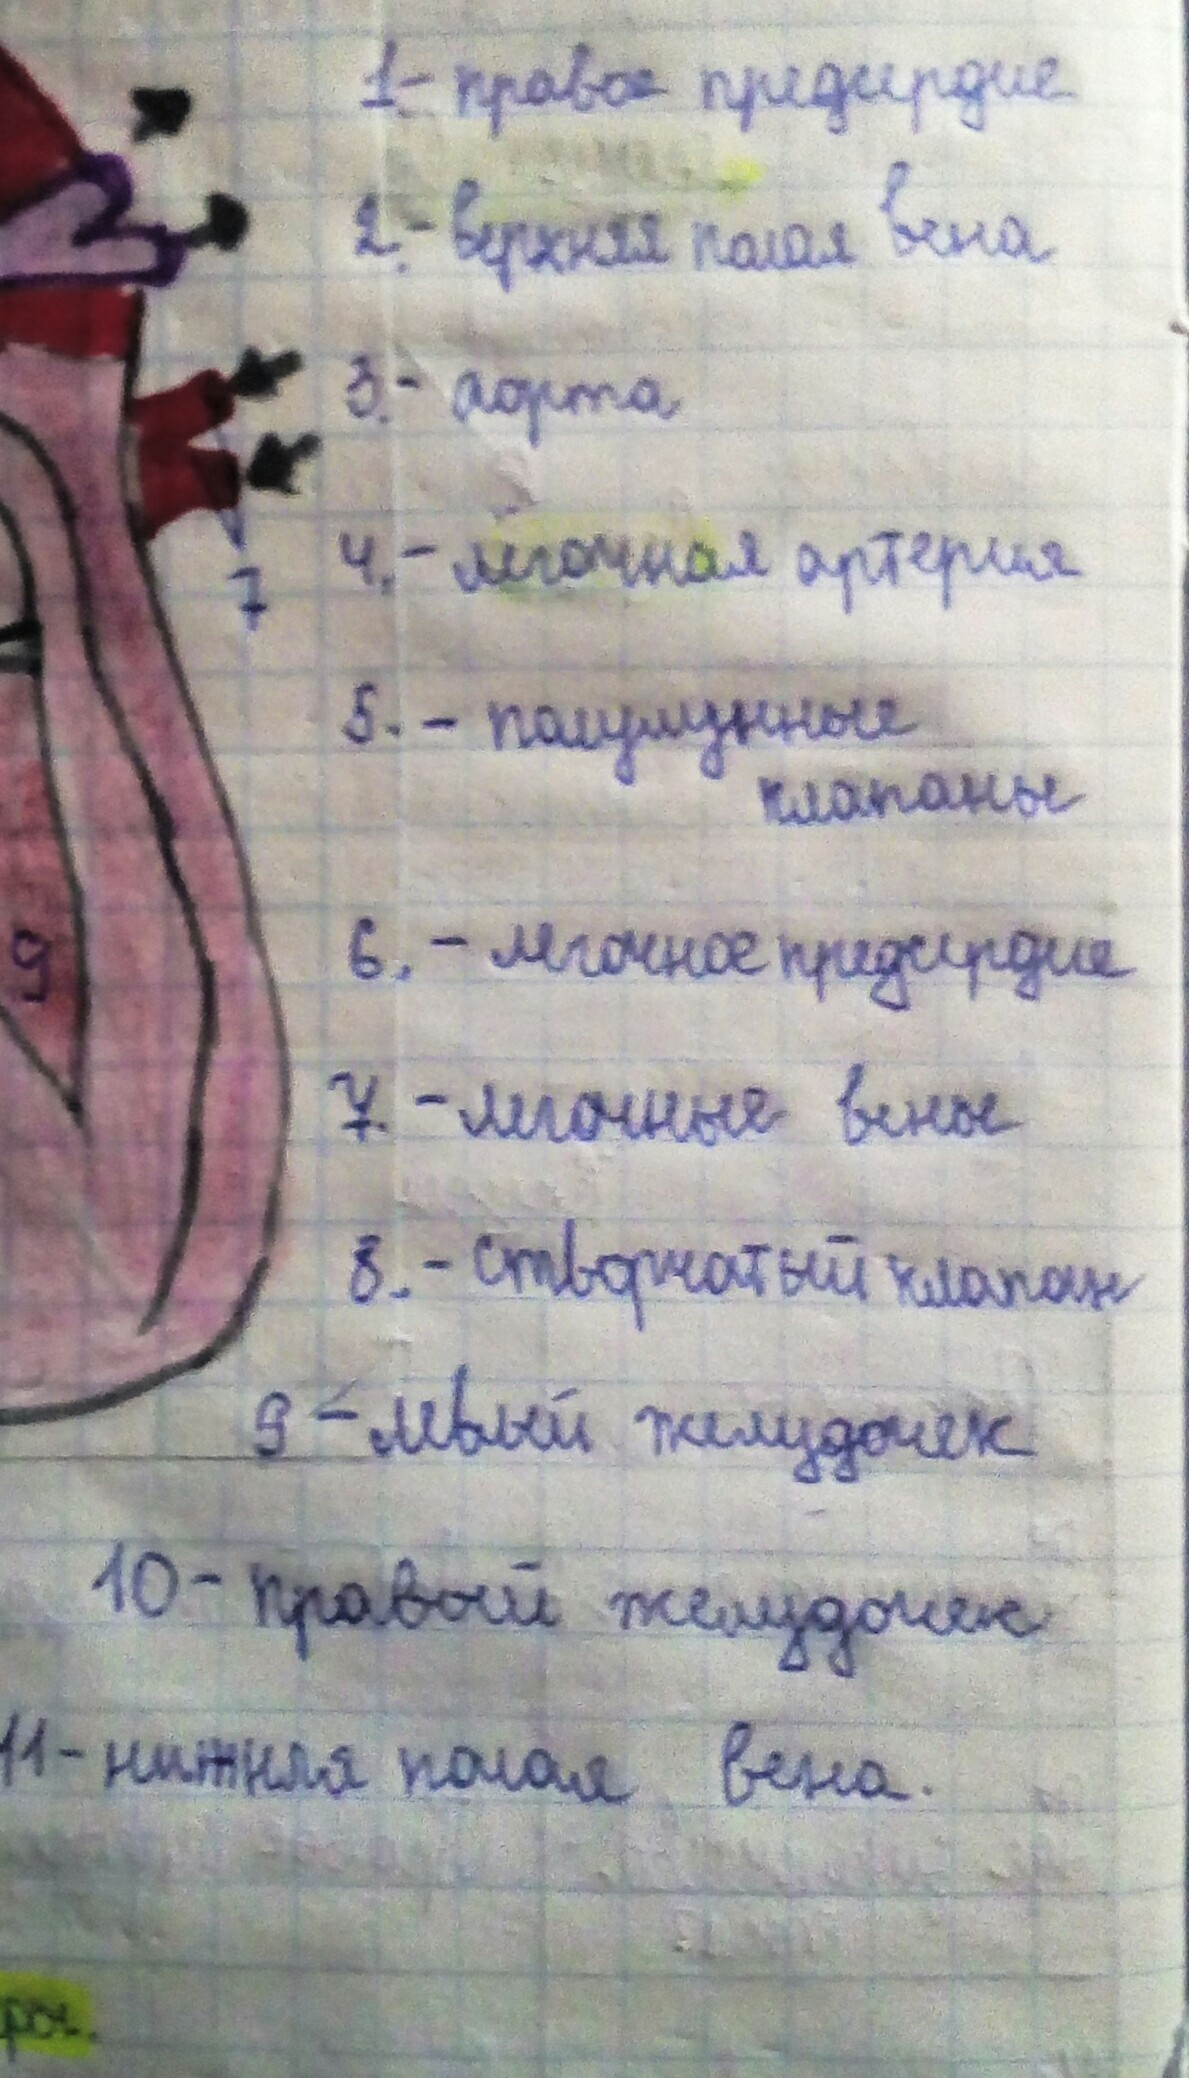 1- правое предсердие
2.- верхняя полая вена
3.- аорта
4.- лёгочная артерия
7
5.- полулунные
клапаны
6.- легочное предсердие
9
7.- легочные вены
8.- створчатый клапан
9- левый желудочек
10- правый желудочек
11- нижняя полая вена.
ры.